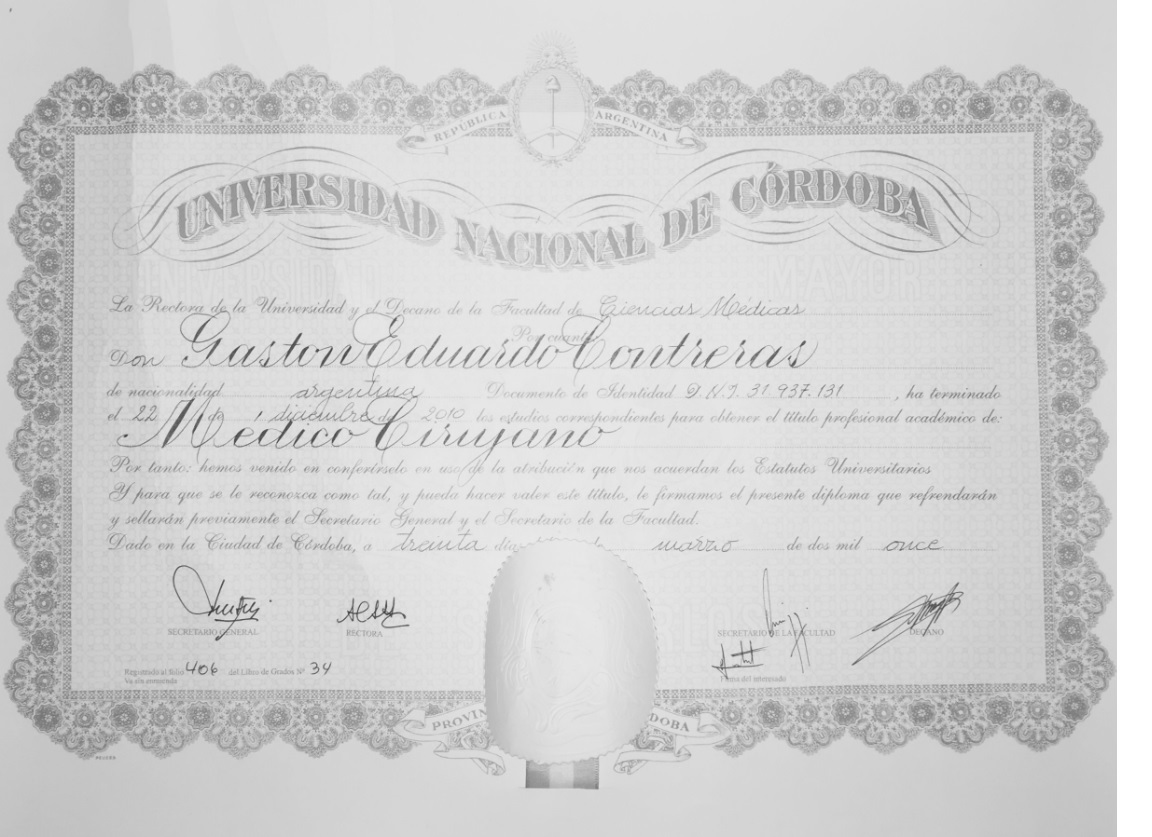 REPÚBLICA ARGENTINA
UNIVERSIDAD NACIONAL DE CÓRDOBA
UNIVERSIDAD MAYOR
La Rectora de la Universidad y el Decano de la Facultad de Ciencias Médicas
Por cuanto
Don Gaston Eduardo Contreras
de nacionalidad argentina Documento de Identidad D.N.I. 31.937.131, ha terminado
el 22 de diciembre de 2010 los estudios correspondientes para obtener el título profesional académico de:
Médico Cirujano
Por tanto: hemos venido en conferírselo en uso de la atribución que nos acuerdan los Estatutos Universitarios
Y para que se le reconozca como tal, y pueda hacer valer este título, le firmamos el presente diploma que refrendarán
y sellarán previamente el Secretario General y el Secretario de la Facultad.
Dado en la Ciudad de Córdoba, a treinta marzo de dos mil once
SECRETARIO GENERAL RECTORA SECRETARIO DE LA FACULTAD DECANO
Registrado al folio 406 del Libro de Grados Nº 34
Va sin enmienda
Firma del interesado